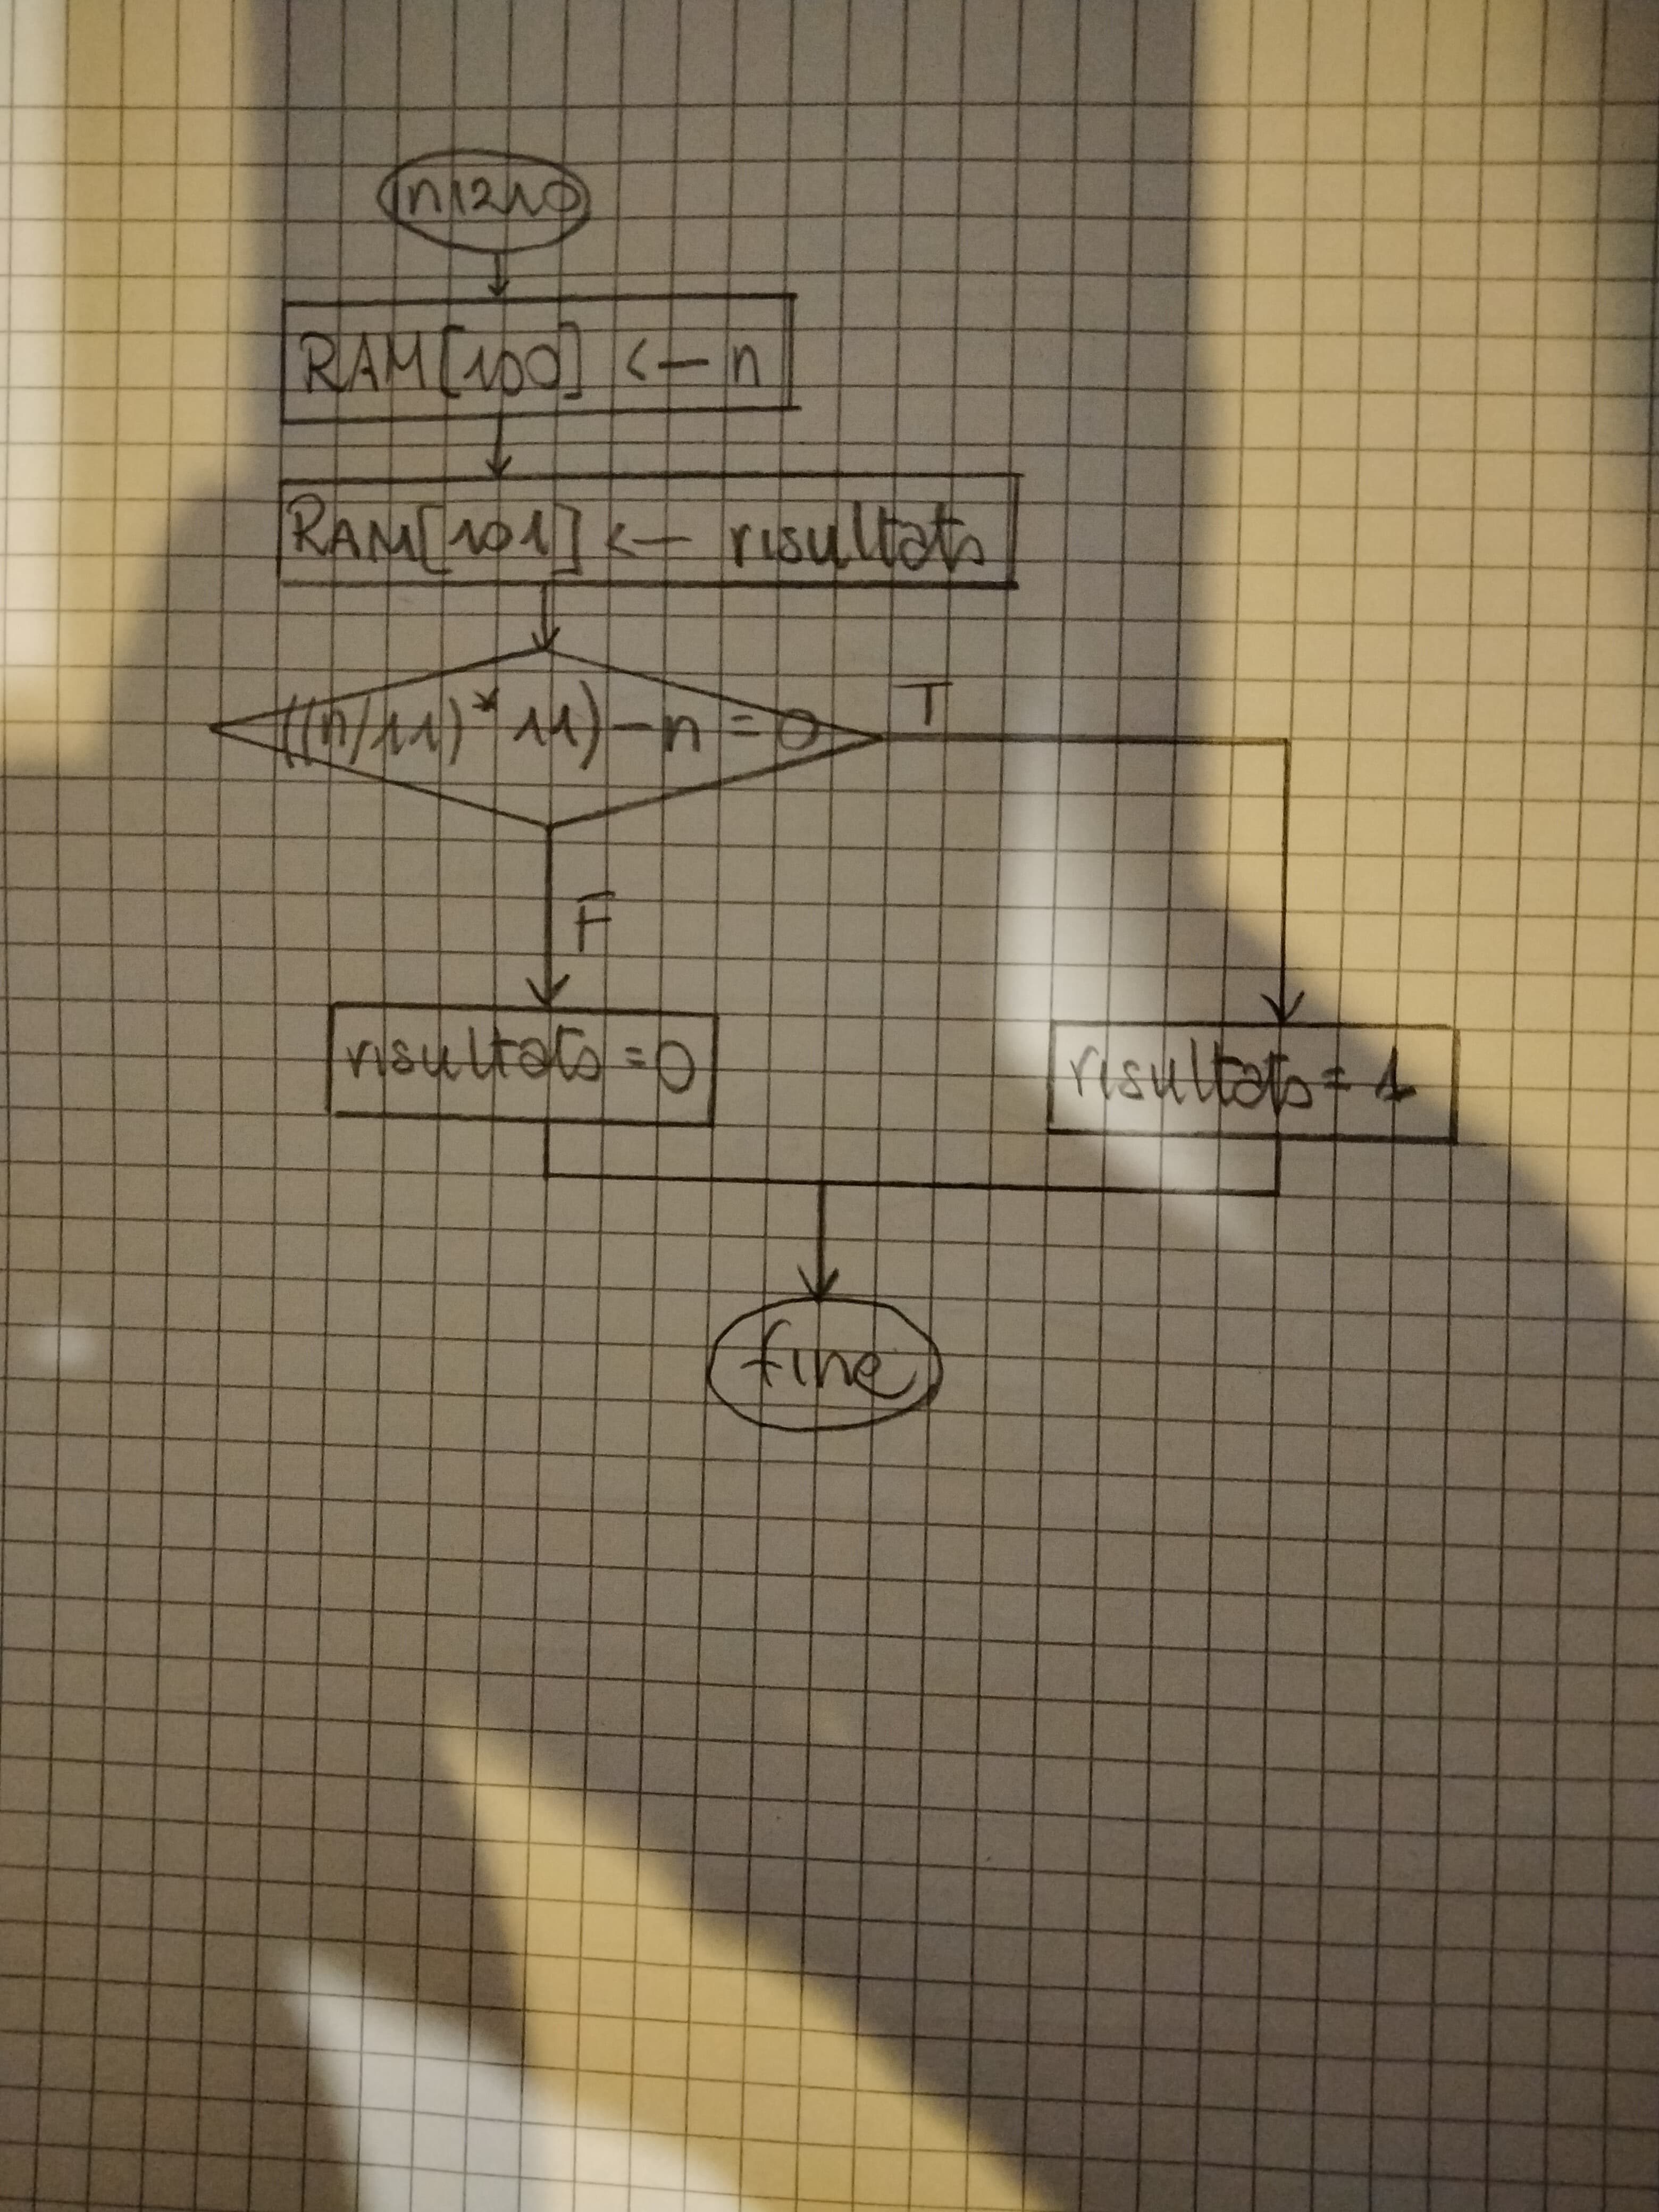 inizio
RAM[100] <— n
RAM[101] <— risultato
((n/11)*11)-n=0
T
F
risultato=0
risultato=1
fine